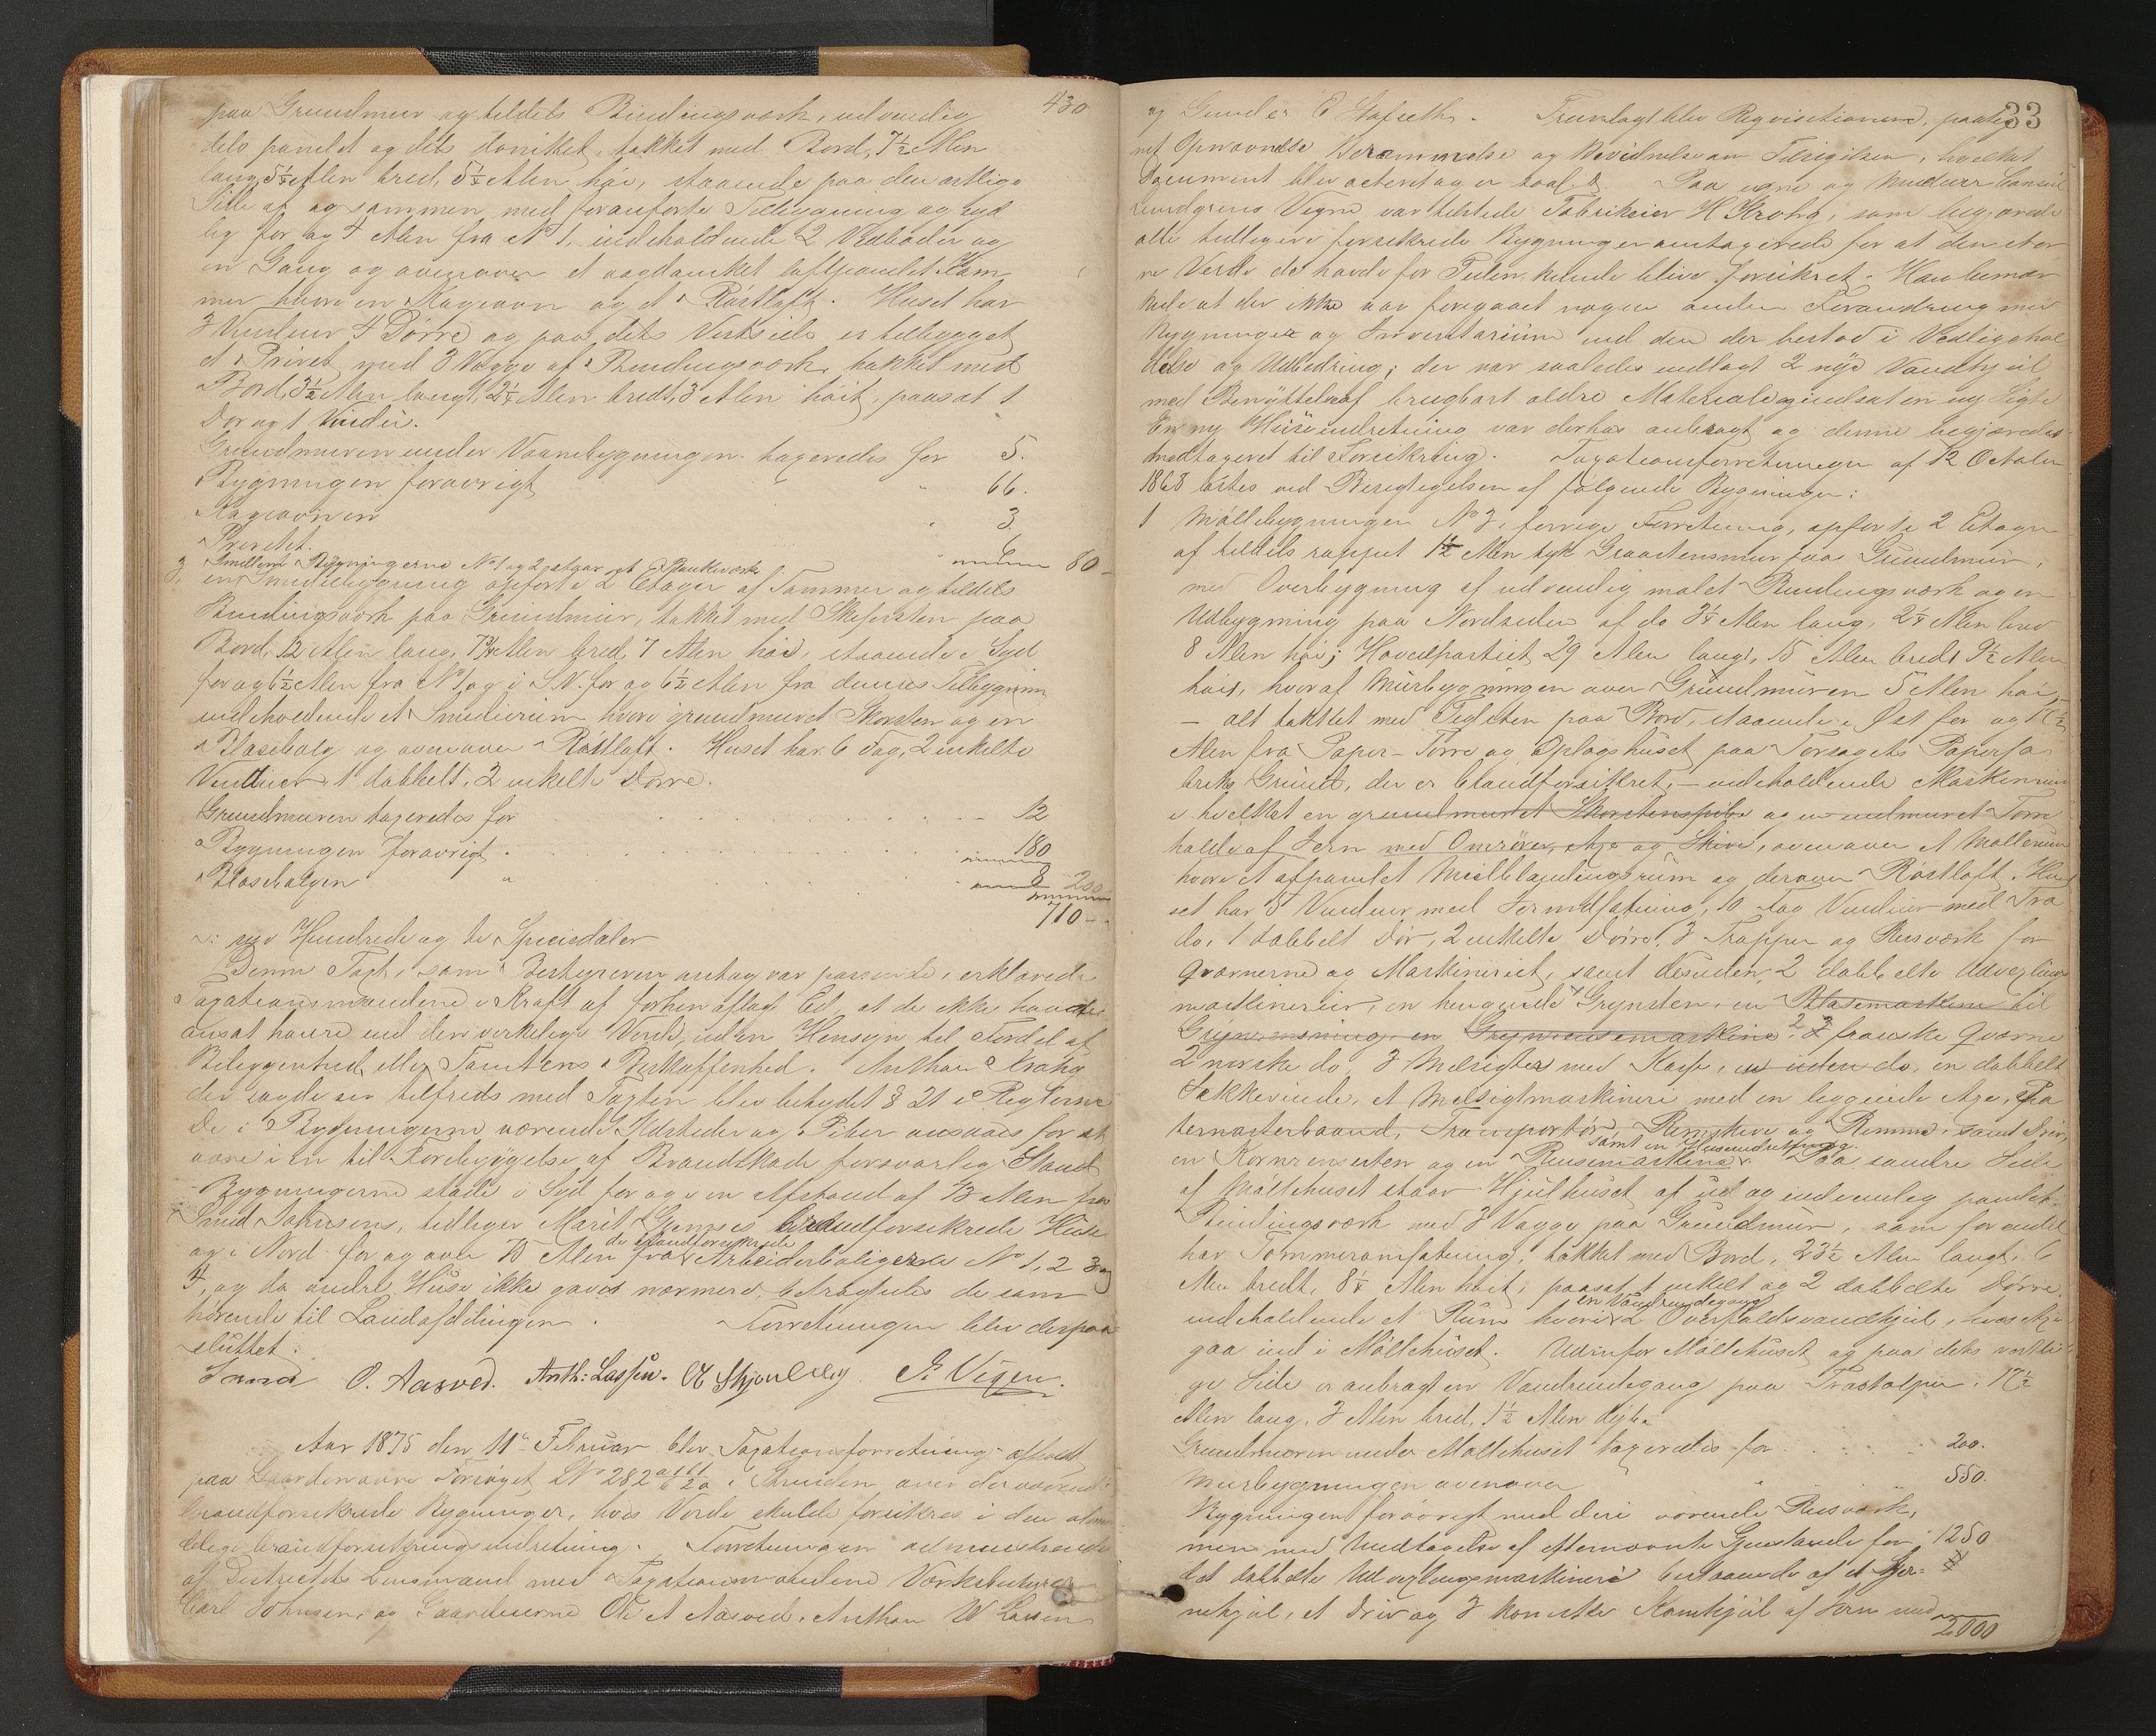 430
paa Grundmur og tildels Bindingsværk, udvendig
dels panelet og dels , takket med Bord, 7½ Alen
lang, 5¼ Alen bred, 5¼ Alen høi, staaende paa den østlige
Side af og sammen med foranførte Tilbygning og syd
lig for og 4 Alen fra No 1, indeholdende 2 Vedboder og
en Gang og ovenover et loftpanelet Kam
mer hvori en Kagovn og et Røstloft. Huset har
3 Vinduer 4 Dørre og paa dets Vestside er tilbygget
et Privet med 3 Vægge af Bindingsværk, takket med
Bord, 3½ Alen langt, 2¼ Alen bredt, 3 Alen høit, paasat 1
Dør og 1 Vindu.
Grundmuren under Vaanebygningen taxeredes for 5.
Bygningen forøvrigt " 66.
Kagovnen " 3.
Privetet " 6 80 -
Imellem Bygningerne No 1 og 2 et Plankeværk
3, en Smedebygning opført i 2 Etager af Tømmer og tildels
Bindingsværk paa Grundmur, takket med Skifersten paa
Bord, 12 Alen lang, 7¾ Alen bred, 7 Alen høi, staaende i Syd
for og 6½ Alen fra No 1 og i S.V. for og 6½ Alen fra dennes Tilbygning
indeholdende et Smedierum hvori grundmuret Skorsten og en
Blasebalg og ovenover Røstloft. Huset har 6 Fag, 2 enkelte
Vinduer, 1 dobbelt, 2 enkelte Dørre.
Grundmuren taxeredes for 12
Bygningen forøvrigt 180
Blasebalgen " 8 200
710 -
: syv Hundrede og ti Speciedaler
Denne Taxt, som Bestyreren antog var passende, erklærede
Taxationsmændene i Kraft af forhen aflagt Ed, at de ikke havde
ansat høiere end den virkelige Værdi, uden Hensyn til Fordel af
Beliggenhed eller Tomtens Beskaffenhed. Anthon Krohg
der sagde sig tilfreds med Taxten blev betydet § 21 i Reglerne
De i Bygningerne værende Ildsteder og Piber ansaaes for at
være i en til Forebyggelse af Brandskade forsvarlig Stand
Bygningerne staae i Syd for og i en Afstand af 13 Alen fra
Smed Johnsens, tidligere Marit brandforsikrede Huse
de brandforsikrede
og i Nord for og over 70 Alen fra Arbeiderboligerne No 1, 2 3 og
4, og da andre Huse ikke gaves nærmere, betragtedes de som
hørende til Landafdelingen. Forretningen blev derpaa
sluttet.
O. Aasved. Anth: Lassen. J. Vigen.
Aar 1875 den 11te Februar blev Taxationsforretning afholdt
paa Gaarden øvre Forsøget, LNo 282 i Strinden over derværende
brandforsikrede Bygninger, hvis Værdi skulde forsikres i den almin
delige brandforsikringsindretning. Forretningen administreredes
af Districtets Lensmand med Taxationsmændene Værksbestyrer
Carl Johnsen, og Gaardeierne Ole A Aasved, Anthon W Lassen
33
og Gunder E Hofseth. Fremlagt blev Reqvisitionen, paateg
net Opnævnelse Berammelse og Bevidnelse om Tilsigelsen, hvilket
Document blev acteret og er saal. Paa egne og Medeier Consul
Lundgrens Vegne var tilstede Fabrikeier H Krohg, som begjærede
alle tidligere forsikrede Bygninger omtaxerede for at den stør
re Værdi de havde for Tiden kunde blive forsikret. Han bemær
kede at der ikke var foregaaet nogen anden Forandring med
Bygningen og Inventarium end den der bestod i Vedligehol
delse og Udbedring; der var saaledes indlagt 2 nye Vandhjul
med Benyttelse af brugbart ældre Materiale og indsat en ny Sigte
En ny Hiseindretning var derhos anbragt og denne begjæredes
medtageret til Forsikring. Taxationsforretningen af 12 October
1868 læstes ved Besigtigelsen af følgende Bygninger:
1 Møllebygningen No 3, forrige Forretning, opført i 2 Etager
af tildels rappet 1½ Alen tyk Graastensmur paa Grundmur,
med Overbygning af udvendig malet Bindingsværk og en
Udbygning paa Nordsiden af do 3¼ Alen lang, 2¼ Alen bred
8 Alen høi; Hovedpartiet 29 Alen langt, 15 Alen bredt 9½ Alen
høit, hvoraf Murbygningen over Grundmuren 5 Alen høi
— alt takket med Teglsten paa Bord, staaende i Øst for og
Alen fra Papir-Tørre og Oplagshuset paa Forsøgets Papirfa
briks Grund, der er brandforsikret, — indeholdende Maskinrum
i hvilket en grundmuret Skorstenspibe og en indmuret Tørre
hælde af Jern med Omrører, Axe og Skive, ovenover et Møllerum
hvori et afpanelet Melblandingsrum og derover Røstloft. Hu
set har 5 Vinduer med Jernindfatning, 10 Fag Vinduer med Træ
do, 1 dobbelt Dør, 2 enkelte Dørre, 3 Trapper og Reisværk for
Qværnerne og Maskineriet, samt desuden 2 dobbelte Udvexlings
maskinerier, en hengende Grynsten, en Blæsemaskine til
Grynrensning, en Grynrensemaskine, 2 franske Qværne
2 norske do, 3 Melsigter med Kasse, en uden do, en dobbelt
Sækkevinde, et Melsigtmaskineri med en liggende Axe, Pa
ternosterbaand, Transportør, Remskive og Remme, samt Driv,
samt en Hiseindretning.
en Kornrensesten og en Rensemaskine. Paa søndre Side
af Møllehuset staar Hjulhuset af ud og indvendig panelet
Bindingsværk med 3 Vægge paa Grundmur, som forøvrigt
har Tømmeromfatning, takket med Bord, 23½ Alen langt, 6
Alen bredt, 8¼ Alen høit, paasat 1 enkelt og 2 dobbelte Dørre
en Vandrendegang
indeholdende et Rum hvori 2 Overfaldsvandhjul, hvis Axe
gaa ind i Møllehuset. Udenfor Møllehuset og paa dets vestli
ge Side er anbragt en Vandrendegang paa Træstolper, 17½
Alen lang, 3 Alen bred, 1½ Alen dyb.
Grundmuren under Møllehuset taxeredes for 200.
Murbygningen ovenover " 550.
Bygningen forøvrigt med deri værende Reisværk,
men med Undtagelse af efternævnte Gjenstande for 1250
det dobbelte Udvexlingsmaskineri bestaaende af et Stjer-
nehjul, et Driv og 3 koniske Kamhjul af Jern med
2000